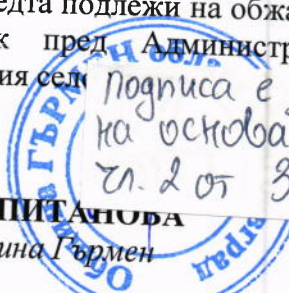 едта подлежи на обжа
к пред Администр
ия сел
подписа е
на основа
чл. 2 от З
ПИТАНОВА
ина Гърмен
Община ГЪРМЕН обл.
град